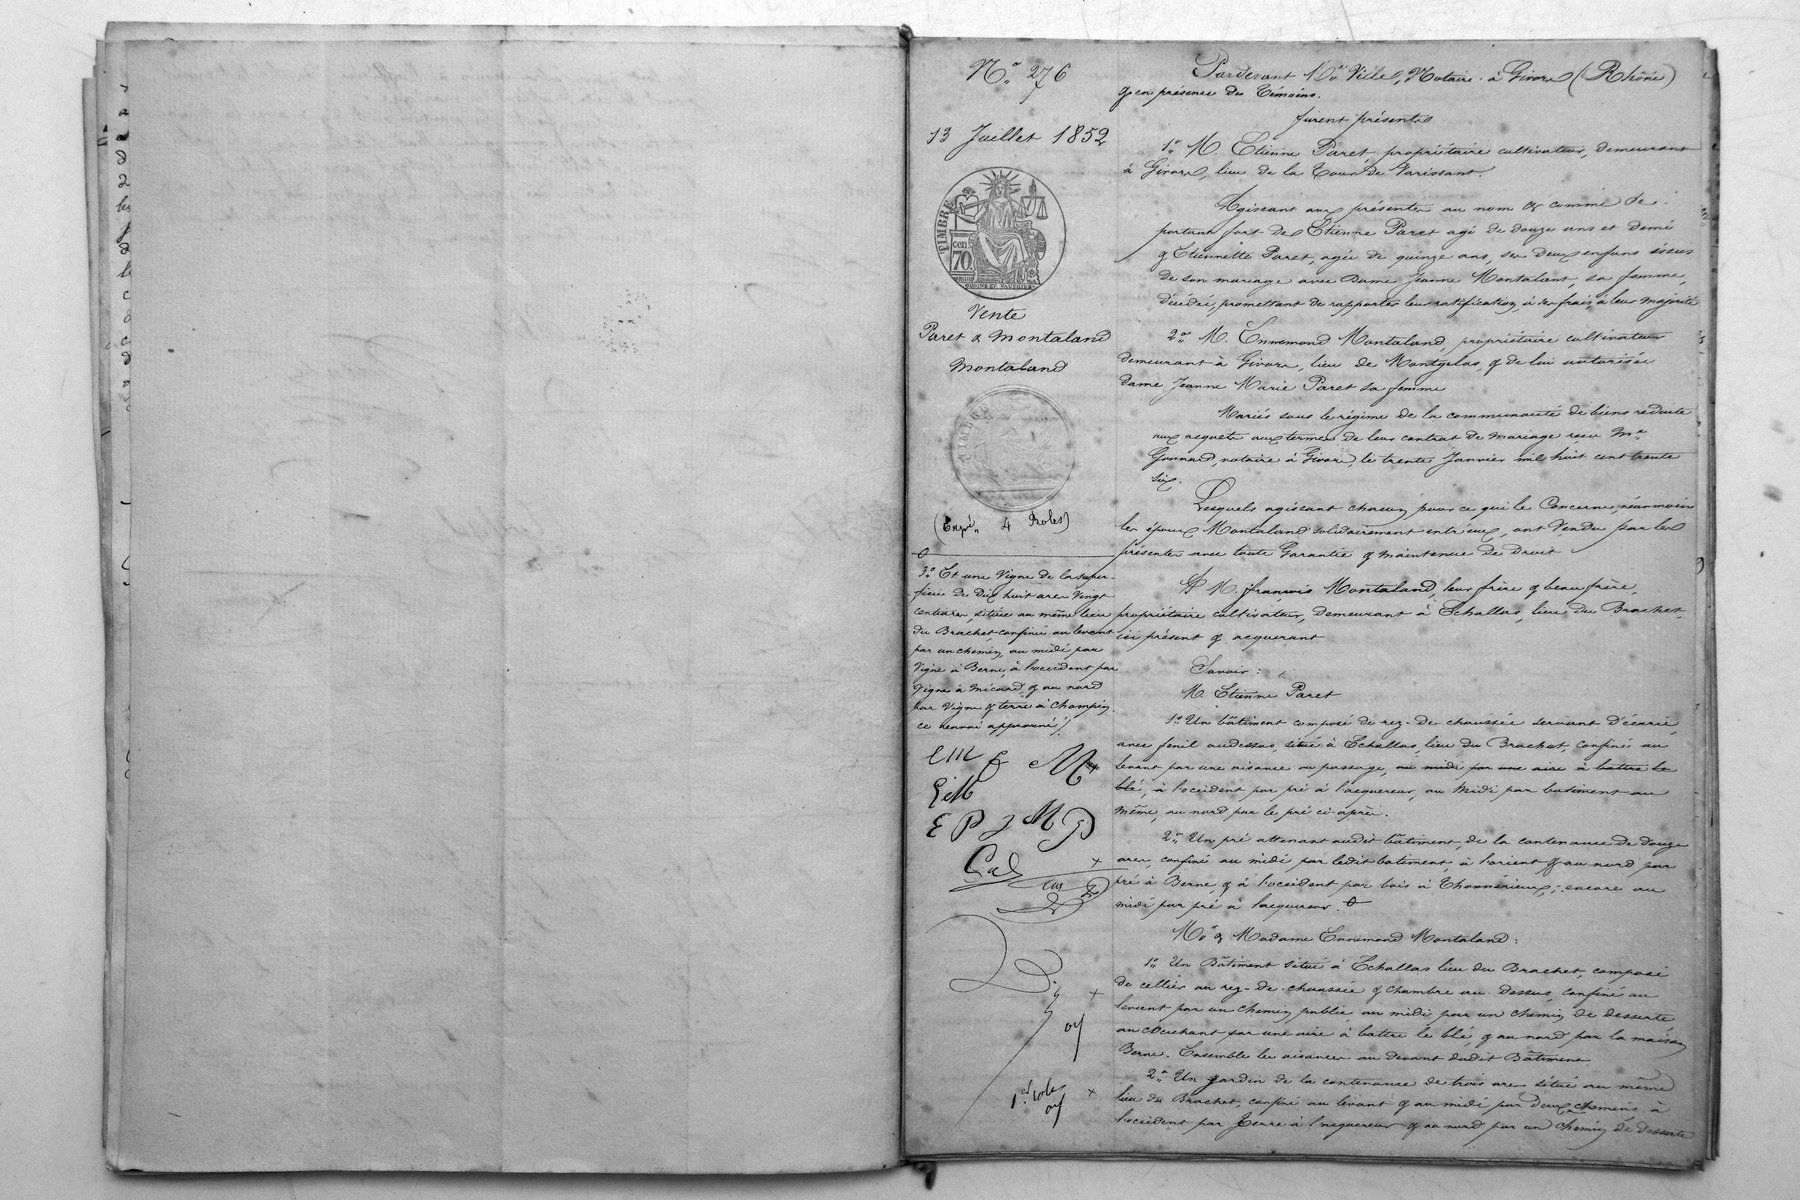 N.° 276
13 Juillet 1852
TIMBRE
cen.
70
Vente
Paret & Montaland
Montaland
TIMBRE
(Expé.n 4 Roles)
3.° Et une Vigne de la super-
ficie de Dix huit ares Vingt
centiares, située au même lieu
du Brachet, confinée au levant
par un chemin, au midi par
Vigne à Berne, à l'occident par
Vigne à Micard, & au nord
par Vigne & terre à Champin.
ce renvoi approuvé /.
E P J M P
Pardevant Ville, Notaire à Givors (Rhône)
& en présence des Témoins.
furent présents
1.° M. Etienne Paret, propriétaire cultivateur, demeurant
à Givors, lieu de la Tour de Varissant.
Agissant aux présentes au nom & comme se
portant fort de Etienne Paret agé de douze ans et demi
& Etiennette Paret, agée de quinze ans, ses deux enfans issus
de son mariage avec Dame Jeanne Montaland, sa femme,
décédée, promettant de rapporter leur ratification, à ses frais, à leur majorité
2.° M. Ennemond Montaland, propriétaire cultivateur
demeurant à Givors, lieu de Montgelas, & de lui autorisée
dame Jeanne Marie Paret sa femme
Mariés sous le régime de la communauté de biens réduite
aux acquets aux termes de leur contrat de mariage reçu Me
Gonnard, notaire à Givors, le trente Janvier mil huit cent trente
six.
Lesquels agissant chacun pour ce qui le Concerne, néanmoins
les époux Montaland solidairement entr'eux, ont Vendu par les
présentes avec toute Garantie & maintenue de droit
A M. françois Montaland, leur frère & beau frère,
propriétaire cultivateur, demeurant à Echallas, lieu du Brachet,
ici présent & acquerant
Savoir :
M. Etienne Paret
1.° Un bâtiment composé de rez-de chaussée servant d'écurie,
avec fenil audessus, situé à Echallas, lieu du Brachet, confiné au
levant par une aisance ou passage, au midi par une aire à battre le
blé, à l'occident par pré à l'acquereur, au Midi par batiment au
même, au nord par le pré ci-après.
2.° Un pré attenant audit bâtiment, de la contenance de douze
ares, confiné au midi par ledit batiment, à l'orient & au nord par
pré à Berne, & à l'occident par bois à Thonnérieux, encore au
midi par pré à l'acquereur.
Mr & Madame Ennemond Montaland :
1.° Un Bâtiment situé à Echallas lieu du Brachet, composé
de cellier au rez-de-chaussée & Chambre au-Dessus, confiné au
levant par un chemin public, au midi par un chemin de desserte
au couchant par une aire à battre le blé, & au nord par la maison
Berne. Ensemble les aisances au devant dudit Bâtiment.
2.° Un Jardin de la contenance de trois ares situé au même
lieu du Brachet, confiné au levant & au midi par Deux chemins, à
l'occident par Terre à l'acquereur & au nord par un chemin de desserte